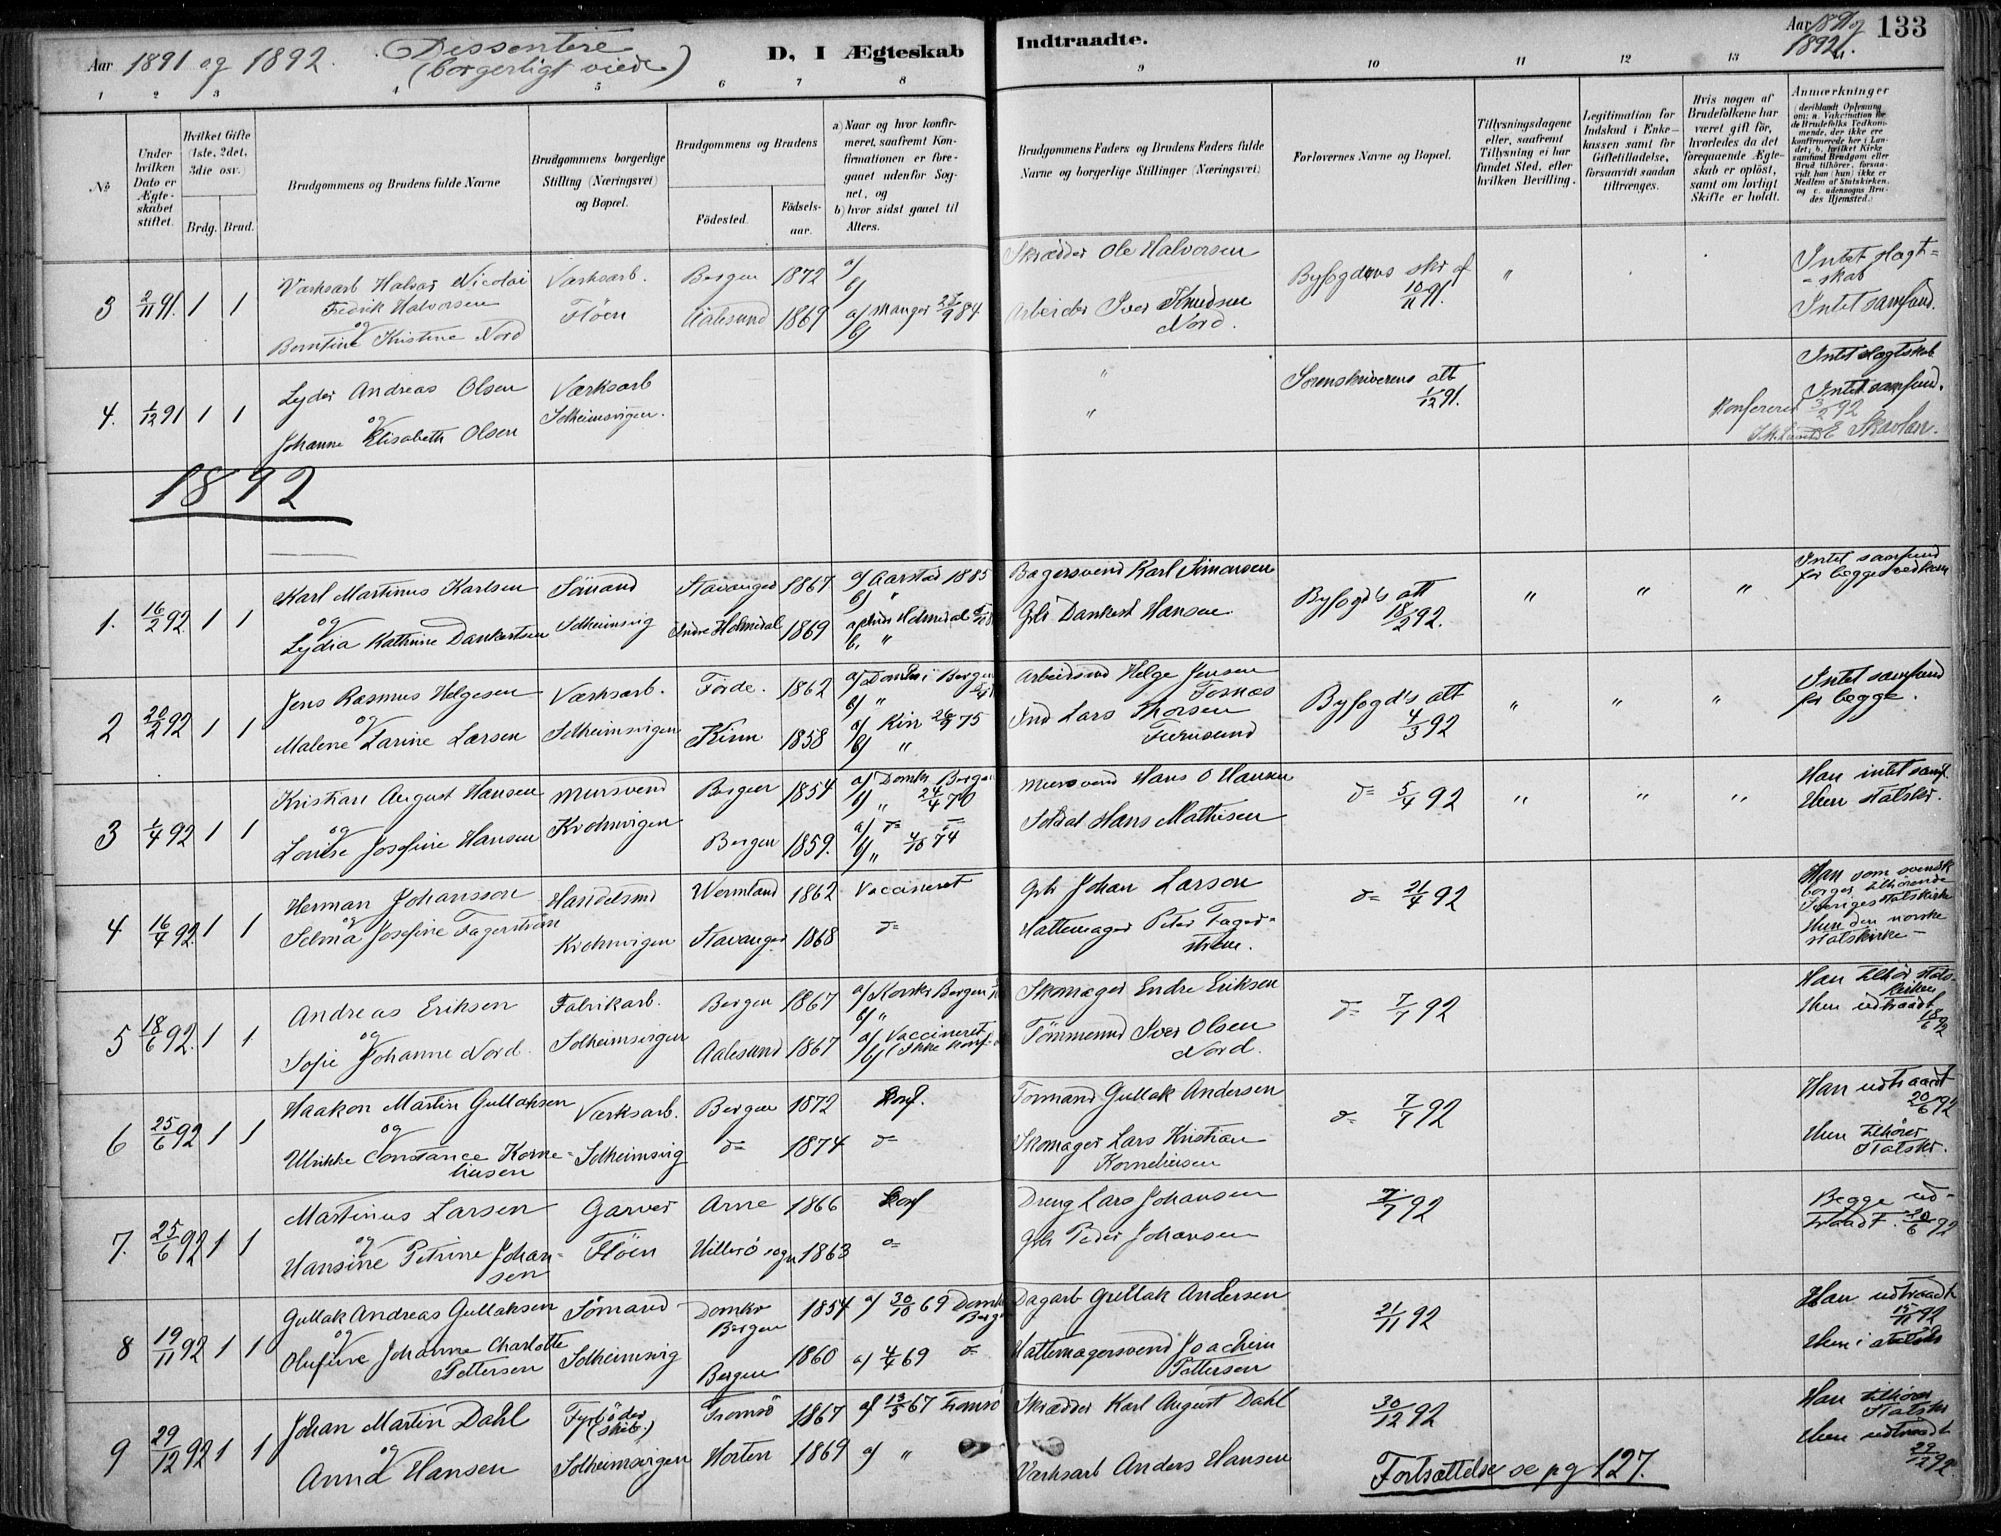 Aar 1891 og 1892. Dissentere
(borgerligt viede)
D, I Ægteskab Indtraadte.
Aar 1891 og
1892.
133
1 2 3 4 5 6 7 8 9 10 11 12 13
No
Under hvilken Dato er Ægteskabet stiftet.
Hvilket Gifte (1ste, 2det, 3die osv.)
Brdg. Brud.
Brudgommens og Brudens fulde Navne
Brudgommens borgerlige Stilling (Næringsvei) og Bopæl.
Brudgommens og Brudens
Födested.
Födsels-aar.
a) Naar og hvor konfirmeret, saafremt Konfirmationen er foregaaet udenfor Sognet, og
b) hvor sidst gaaet til Alters.
Brudgommens Faders og Brudens Faders fulde Navne og borgerlige Stillinger (Næringsvei)
Forlovernes Navne og Bopæl.
Tillysningsdagene eller, saafremt Tillysning ei har fundet Sted, efter hvilken Bevilling.
Legitimation for Indskud i Enkekassen samt for Giftetilladelse, forsaavidt saadan tiltrænges.
Hvis nogen af Brudefolkene har været gift för, hvorledes da det foregaaende Ægteskab er oplöst, samt om lovligt Skifte er holdt.
Anmærkninger
(deriblandt Oplysning om: a. Vakcination for de Brudefolks Vedkommende, der ikke ere konfirmerede her i Landet; b. hvilket Kirkesamfund Brudgom eller Brud tilhörer, forsaavidt han (hun) ikke er Medlem af Statskirken, og c. udensogns Brudes Hjemsted.)
3 2/11 91. 1 1
Værksarb Halvor Nicolai
Fredrik Halvorsen
og
Berntine Kristine Nord
Værksarb.
Flöen
Bergen 1872 a/
b/
Aalesund 1869 a/ Manger
b/
Skrædder Ole Halvorsen
Arbeider Iver Knudsen
Nord.
Byfogdens skr af
10/11 91.
"
Intet slægt-
skab
Intet samfund.
4. 1/12 91 1 1
Lyder Andreas Olsen
og
Johanne Elisabeth Olsen
Værksarb
Solheimsvigen.
"
"
Sorenskriverens att
1/12 91.
Intet slægtskab
Intet samfund.
Konfereret 3/2 92
E Skavlan.
1892
1. 16/2 92. 1 1
Karl Martinus Karlsen
og
Lydia Kathrine Dankertsen
Sömand
Solheimsvig
Stavanger 1867 a/ Aarstad 1885
b/ "
Indre Holmedal 1869
b, "
Bagersvend Karl Simonsen
Gbr Dankert Hansen
Byfogd's att
18/2 92.
" " "
Intet samfund
for begges vedkom
2 20/2 92 1 1
Jens Rasmus Helgesen
og
Malene Larine Larsen
Værksarb.
Solheimsvigen
Förde. 1862 a/ Domk i Bergen
b/ "
Kinn 1858 a/ Kin 75
b/ "
Arbeidsmd Helge Jensen
Fosnæs
Ind Lars Thorsen
Byfogd's att
4/3 92
" " "
Intet samfund
for begge.
3 1/4 92 1 1
Kristian August Hansen
og
Louise Josefine Hansen
Mursvend
Krohnvigen
Bergen 1854 a/ Domk Bergen
b/ " 24/4 70
Bergen 1859. a/ do
b/ " 4/10 74
Mursvend Hans O Hansen
Soldat Hans Mathisen
do 5/4 92
" " "
Han intet samf.
Hun statskr.
4 16/4 92. 1 1
Herman Johansson
og
Selma Josefine Fagerström
Handelsmd
Krohnvigen
Wermland 1862 Vaccineret
Stavanger 1868 do
Gbr Johan Larson
Hattemager Peter Fager-
ström.
do 21/4 92
Han som svensk
borger tilhörende
Sveriges statskirke
Hun den norske
statskirke -
5 18/6 92. 1 1
Andreas Eriksen
og
Sofie Johanne Nord
Fabrikarb.
Solheimsvigen
Bergen 1867 a/ Korskr Bergen
b/ "
Aalesund 1867 a/ Vaccineret
b/ (Ikke konf.
Skomager Endre Eriksen
Tömmermd Iver Olsen
Nord.
do 7/7 92
Han tilhör stats-
kirken
Hun udtraadt
18/6 92
6 25/6 92 1 1
Haakon Martin Gullaksen
og
Ulrikke Constance Korne-
liusen
Værksarb.
Solheimsvig
Bergen 1872 Konf.
do 1874 do
Formand Gullak Andersen
Skomager Lars Kristian
Korneliusen
do 7/7 92
Han udtraadt
20/6 92
Hun tilhörer
Statskr.
7. 25/6 92 1 1
Martinus Larsen
og
Hansine Petrine Johan-
sen
Garver
Flöen
Arne 1866 Konf
Hillesö sogn 1863 do
Dreng Lars Johansen
Gbr Peder Johansen
7/7 92
Begge ud-
traadt. 20/6 92
8 19/11 92 1 1
Gullak Andreas Gullaksen
og
Olufine Johanne Charlotte
Pettersen
Sömand
Solheimsvig
Domkr
Bergen 1854 a/ 30/10 69 Domk
Berg
Bergen 1860 a/ 4/4 69 do
Dagarb Gullak Andersen
Hattemagersvend Joachim
Pettersen
21/11 92
Han udtraadt
15/11 92
Hun i statskr
9 29/12 92 1 1
Johan Martin Dahl
og
Anna Hansen
Fyrböder
(skib.)
Solheimsvigen
Tromsö 1867 a/ 13/5 67 Tromsö
Horten 1869 a/ "
Skrædder Karl August Dahl
Værksarb Anders Hansen
30/12 92
Han tilhörer
Statskr
Hun udtraadt
29/12 92.
Fortsættelse se pg 127.